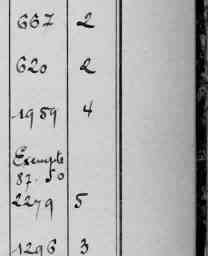 667 2
620 2
1959 4
Exempte
87.50
2279 5
1296 3